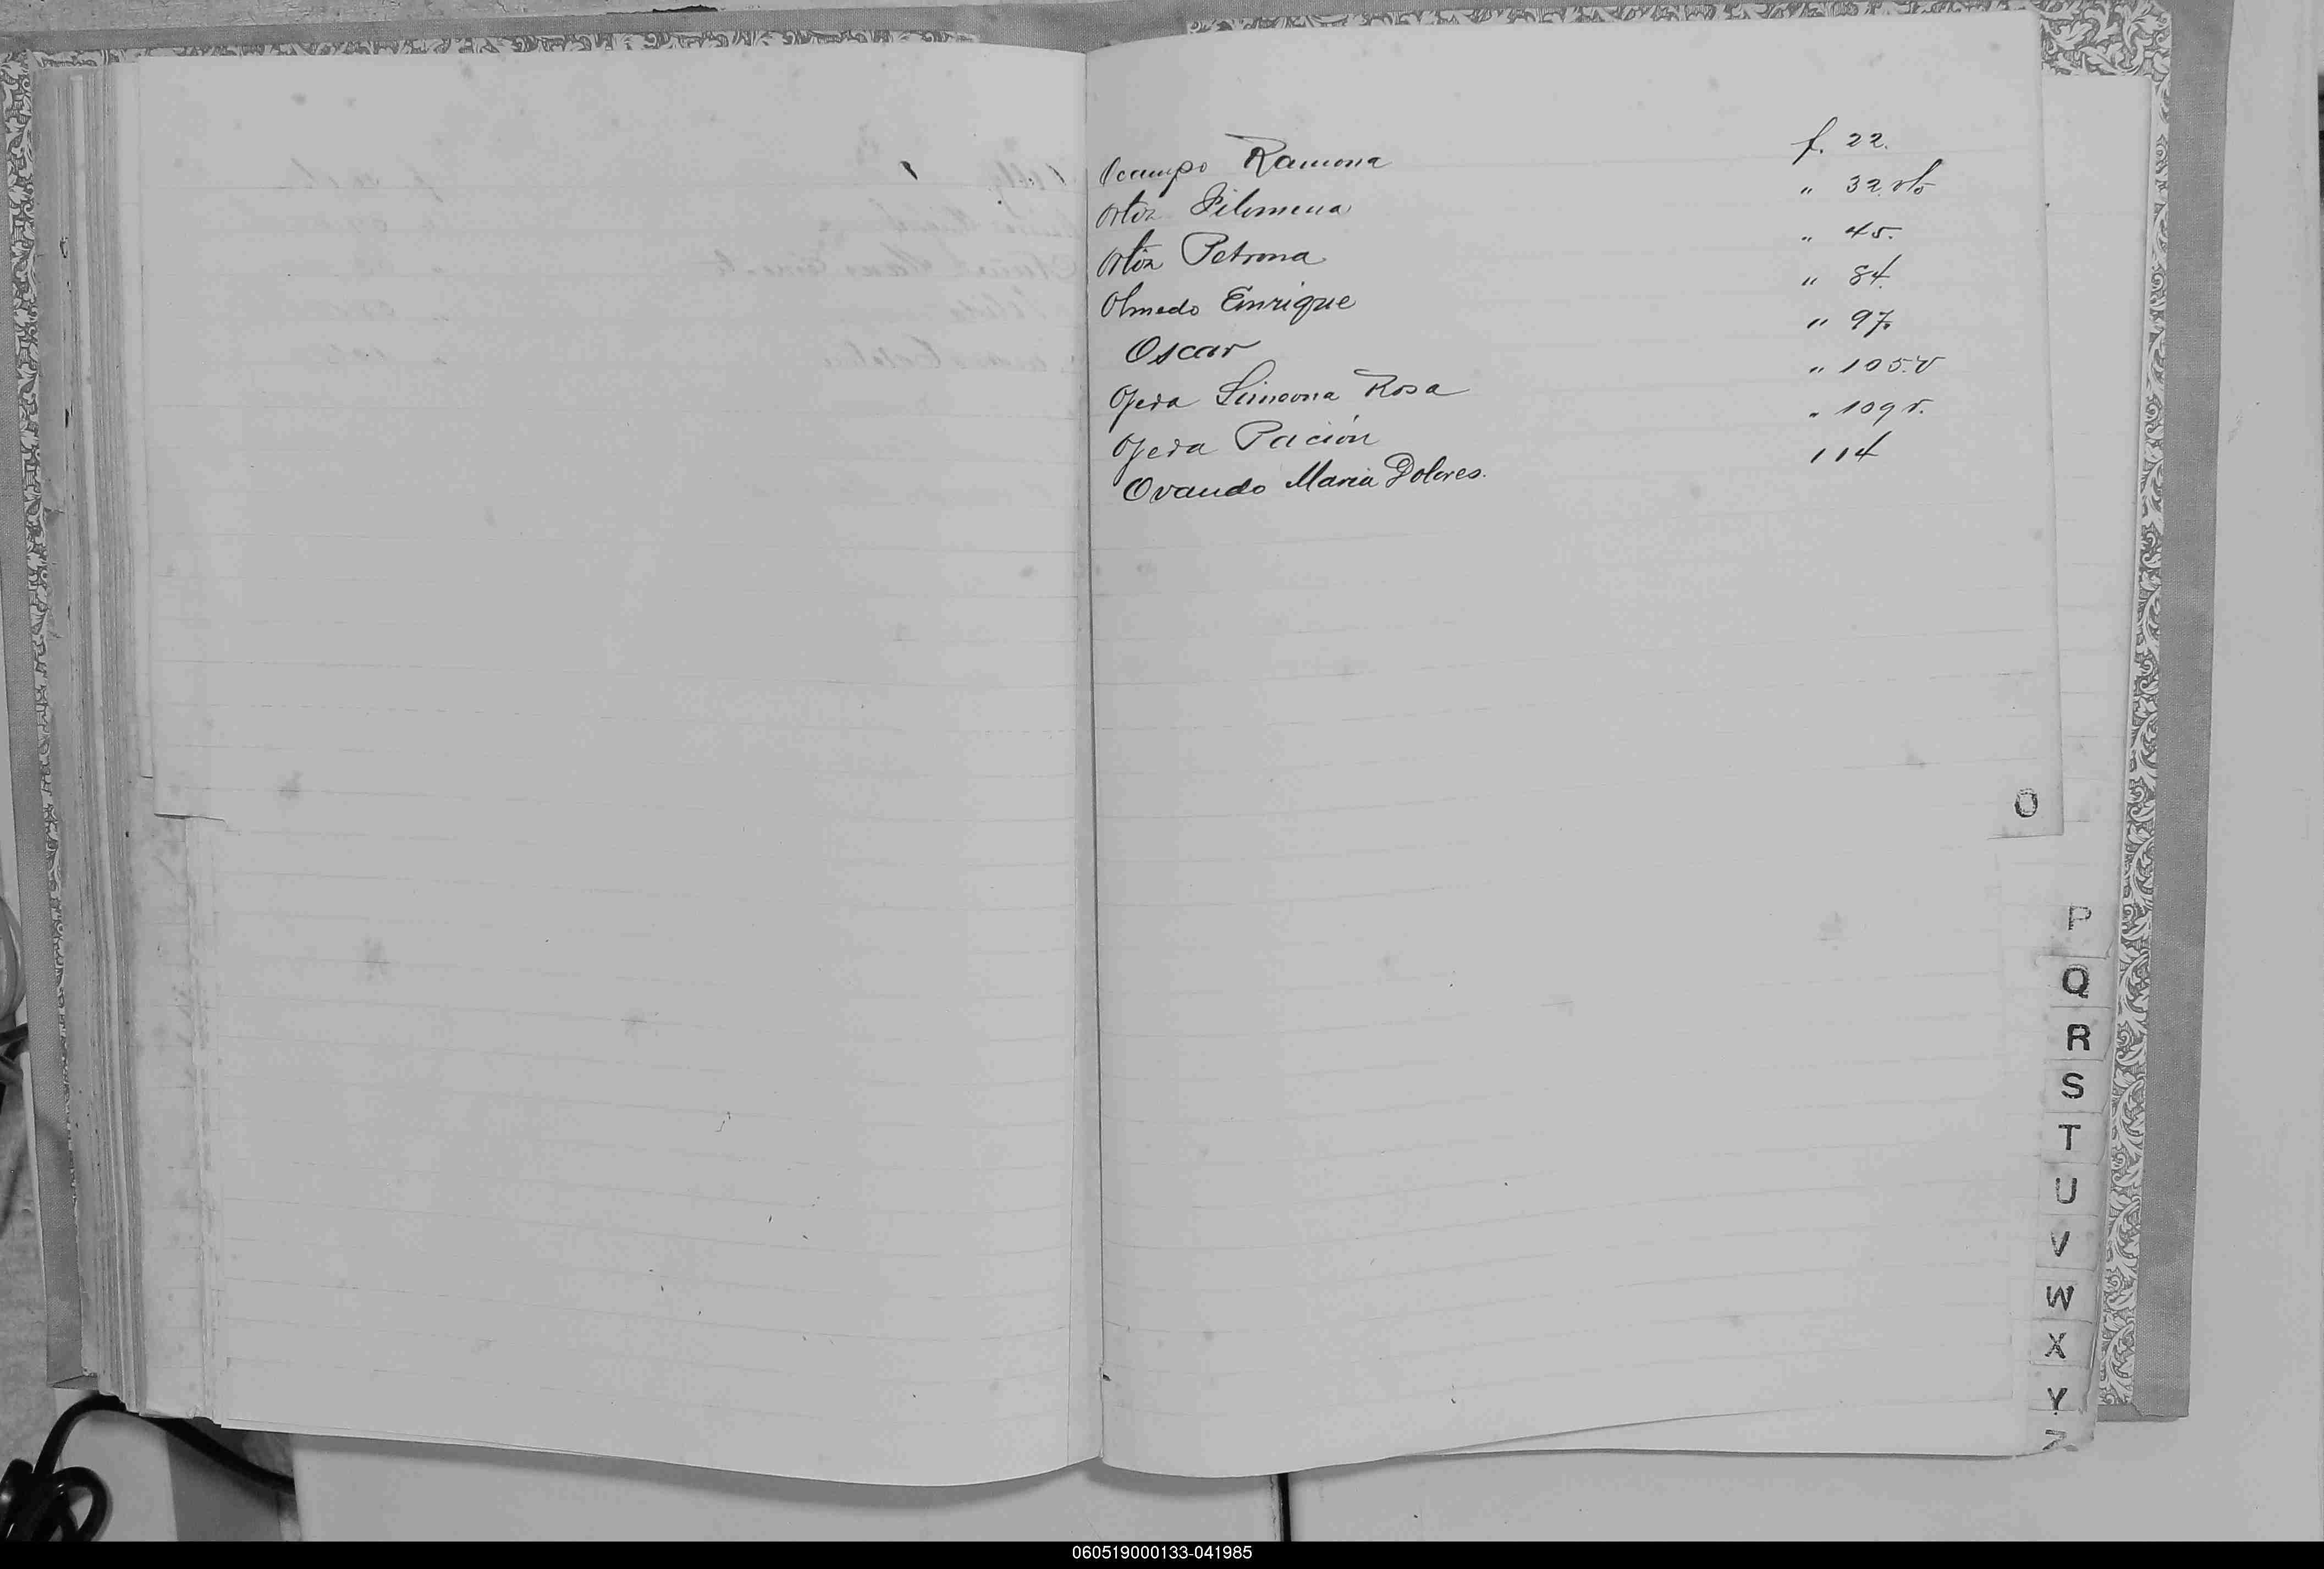 Ocampo Ramona f. 22.
Ortiz Filomena " 32 vto
Ortiz Petrona " 45.
Olmedo Enrique " 84.
Oscar " 97.
Ojeda Simeona Rosa " 105.v
Ojeda Pación " 109 v.
Ovando Maria Dolores. 114
O
P
Q
R
S
T
U
V
W
X
Y
Z
060519000133-041985